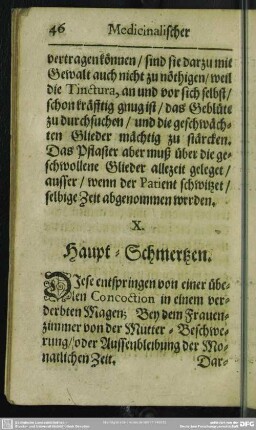 46 Medicinalischer
vertragen können / sind sie darzu mit
Gewalt auch nicht zu nöthigen / weil
die Tinctura, an und vor sich selbst /
schon kräfftig gnug ist / das Geblüte
zu durchsuchen / und die geschwäch-
ten Glieder mächtig zu stärcken.
Das Pflaster aber muß über die ge-
schwollene Glieder allezeit geleget /
ausser / wenn der Patient schwitzet /
selbige Zeit abgenommen werden.
X.
Haupt-Schmertzen.
DIese entspringen von einer übe-
len Concoction in einem ver-
derbten Magen; Bey dem Frauen-
zimmer von der Mutter-Beschwe-
rung / oder Aussenbleibung der Mo-
natlichen Zeit.
Dar-